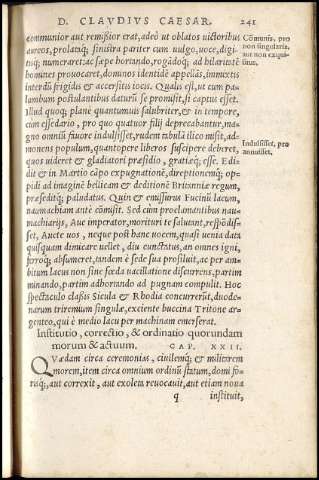 D. CLAVDIVS CAESAR. 241
communior aut remißior erat, adeò ut oblatos uictoribus
aureos, prolataq́; sinistra pariter cum uulgo, uoce, digi-
tisq́; numeraret: ac sæpe hortando, rogādoq́; ad hilaritatē
homines prouocaret, dominos identidē appellās, immixtis
interdū frigidis & accersitis iocis. Qualis est, ut cum pa-
lumbum postulantibus daturū se promisit, si captus esset.
Illud quoq; planè quantumuis salubriter, & in tempore,
cum essedario, pro quo quatuor filij deprecabantur, ma-
gno omniū fauore indulsisset, rudem tabulā ilico misit, ad-
monens populum, quantopere liberos suscipere deberet,
quos uideret & gladiatori præsidio, gratiæq́; esse. Edi-
dit & in Martio cāpo expugnationē, direptionemq́; op-
pidi ad imaginē bellicam & deditionē Britanniæ regum,
præseditq́; paludatus. Quin & emissurus Fucinū lacum,
naumachiam antè cōmisit. Sed cùm proclamantibus nau-
machiarijs, Aue imperator, morituri te salutant, respōdis-
set, Auete uos, neque post hanc uocem, quasi uenia data
quisquam dimicare uellet, diu cunctatus, an omnes igni,
ferroq́; absumeret, tandem è sede sua prosiluit, ac per am-
bitum lacus non sine fœda uacillatione discurrens, partim
minando, partim adhortando ad pugnam compulit. Hoc
spectaculo classis Sicula & Rhodia concurrerūt, duode-
narum triremium singulæ, exciente buccina Tritone ar-
genteo, qui è medio lacu per machinam emerserat.
Institutio, correctio, & ordinatio quorundam
morum & actuum. CAP. XXII.
Quædam circa ceremonias, ciuilemq́; & militarem
morem, item circa omnium ordinū statum, domi fo-
risq́;, aut correxit, aut exoleta reuocauit, aut etiam noua
q instituit,
Cōmunis, pro
non singularis,
aut non exqui-
situs.
Indulsisset, pro
annuisset.